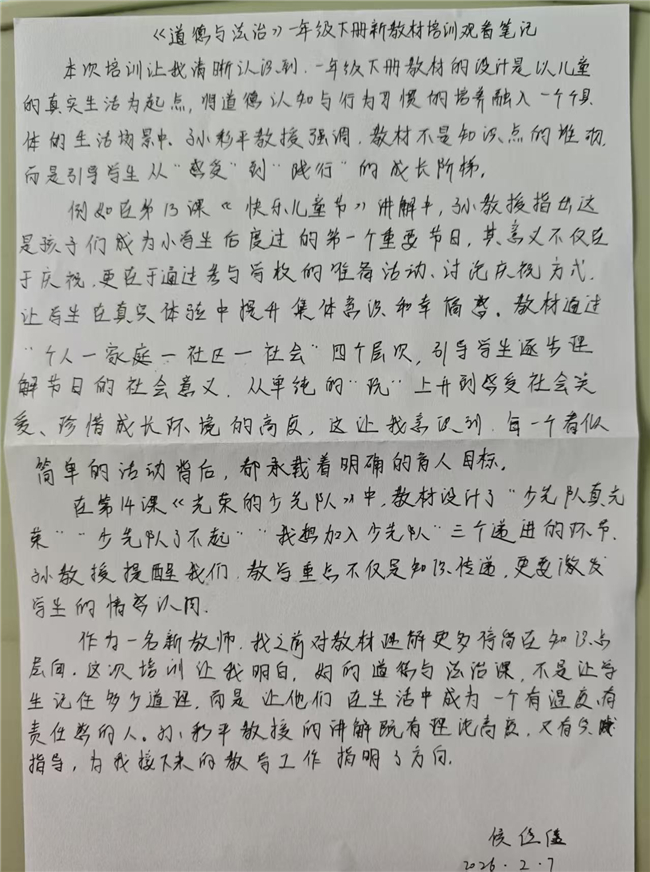 《道德与法治》一年级下册新教材培训观看笔记
本次培训让我清晰认识到,一年级下册教材的设计是以儿童
的真实生活为起点,将道德认知与行为习惯的培养融入一个个具
体的生活场景中。孙彩平教授强调,教材不是知识点的堆砌,
而是引导学生从"感受"到"践行"的成长阶梯。
例如在第13课《快乐儿童节》讲解中,孙教授指出这
是孩子们成为小学生后度过的第一个重要节日,其意义不仅在
于庆祝,更在于通过参与学校的准备活动、讨论庆祝方式,
让学生在真实体验中提升集体意识和幸福感。教材通过
"个人一家庭一社区一社会"四个层次,引导学生逐步理
解节日的社会意义,从单纯的"玩"上升到感受社会关
爱、珍惜成长环境的高度,这让我意识到,每一个看似
简单的活动背后,都承载着明确的育人目标。
在第14课《光荣的少先队》中,教材设计了"少先队真光
荣""少先队了不起""我想加入少先队"三个递进的环节,
孙教授提醒我们,教学重点不仅是知识传递,更要激发
学生的情感认同。
作为一名新教师,我之前对教材理解更多停留在知识点
层面,这次培训让我明白,好的道德与法治课,不是让学
生记住多少道理,而是让他们在生活中成为一个有温度、有
责任感的人。孙彩平教授的讲解既有理论高度,又有实践
指导,为我接下来的教学工作指明了方向。
2026.2.7